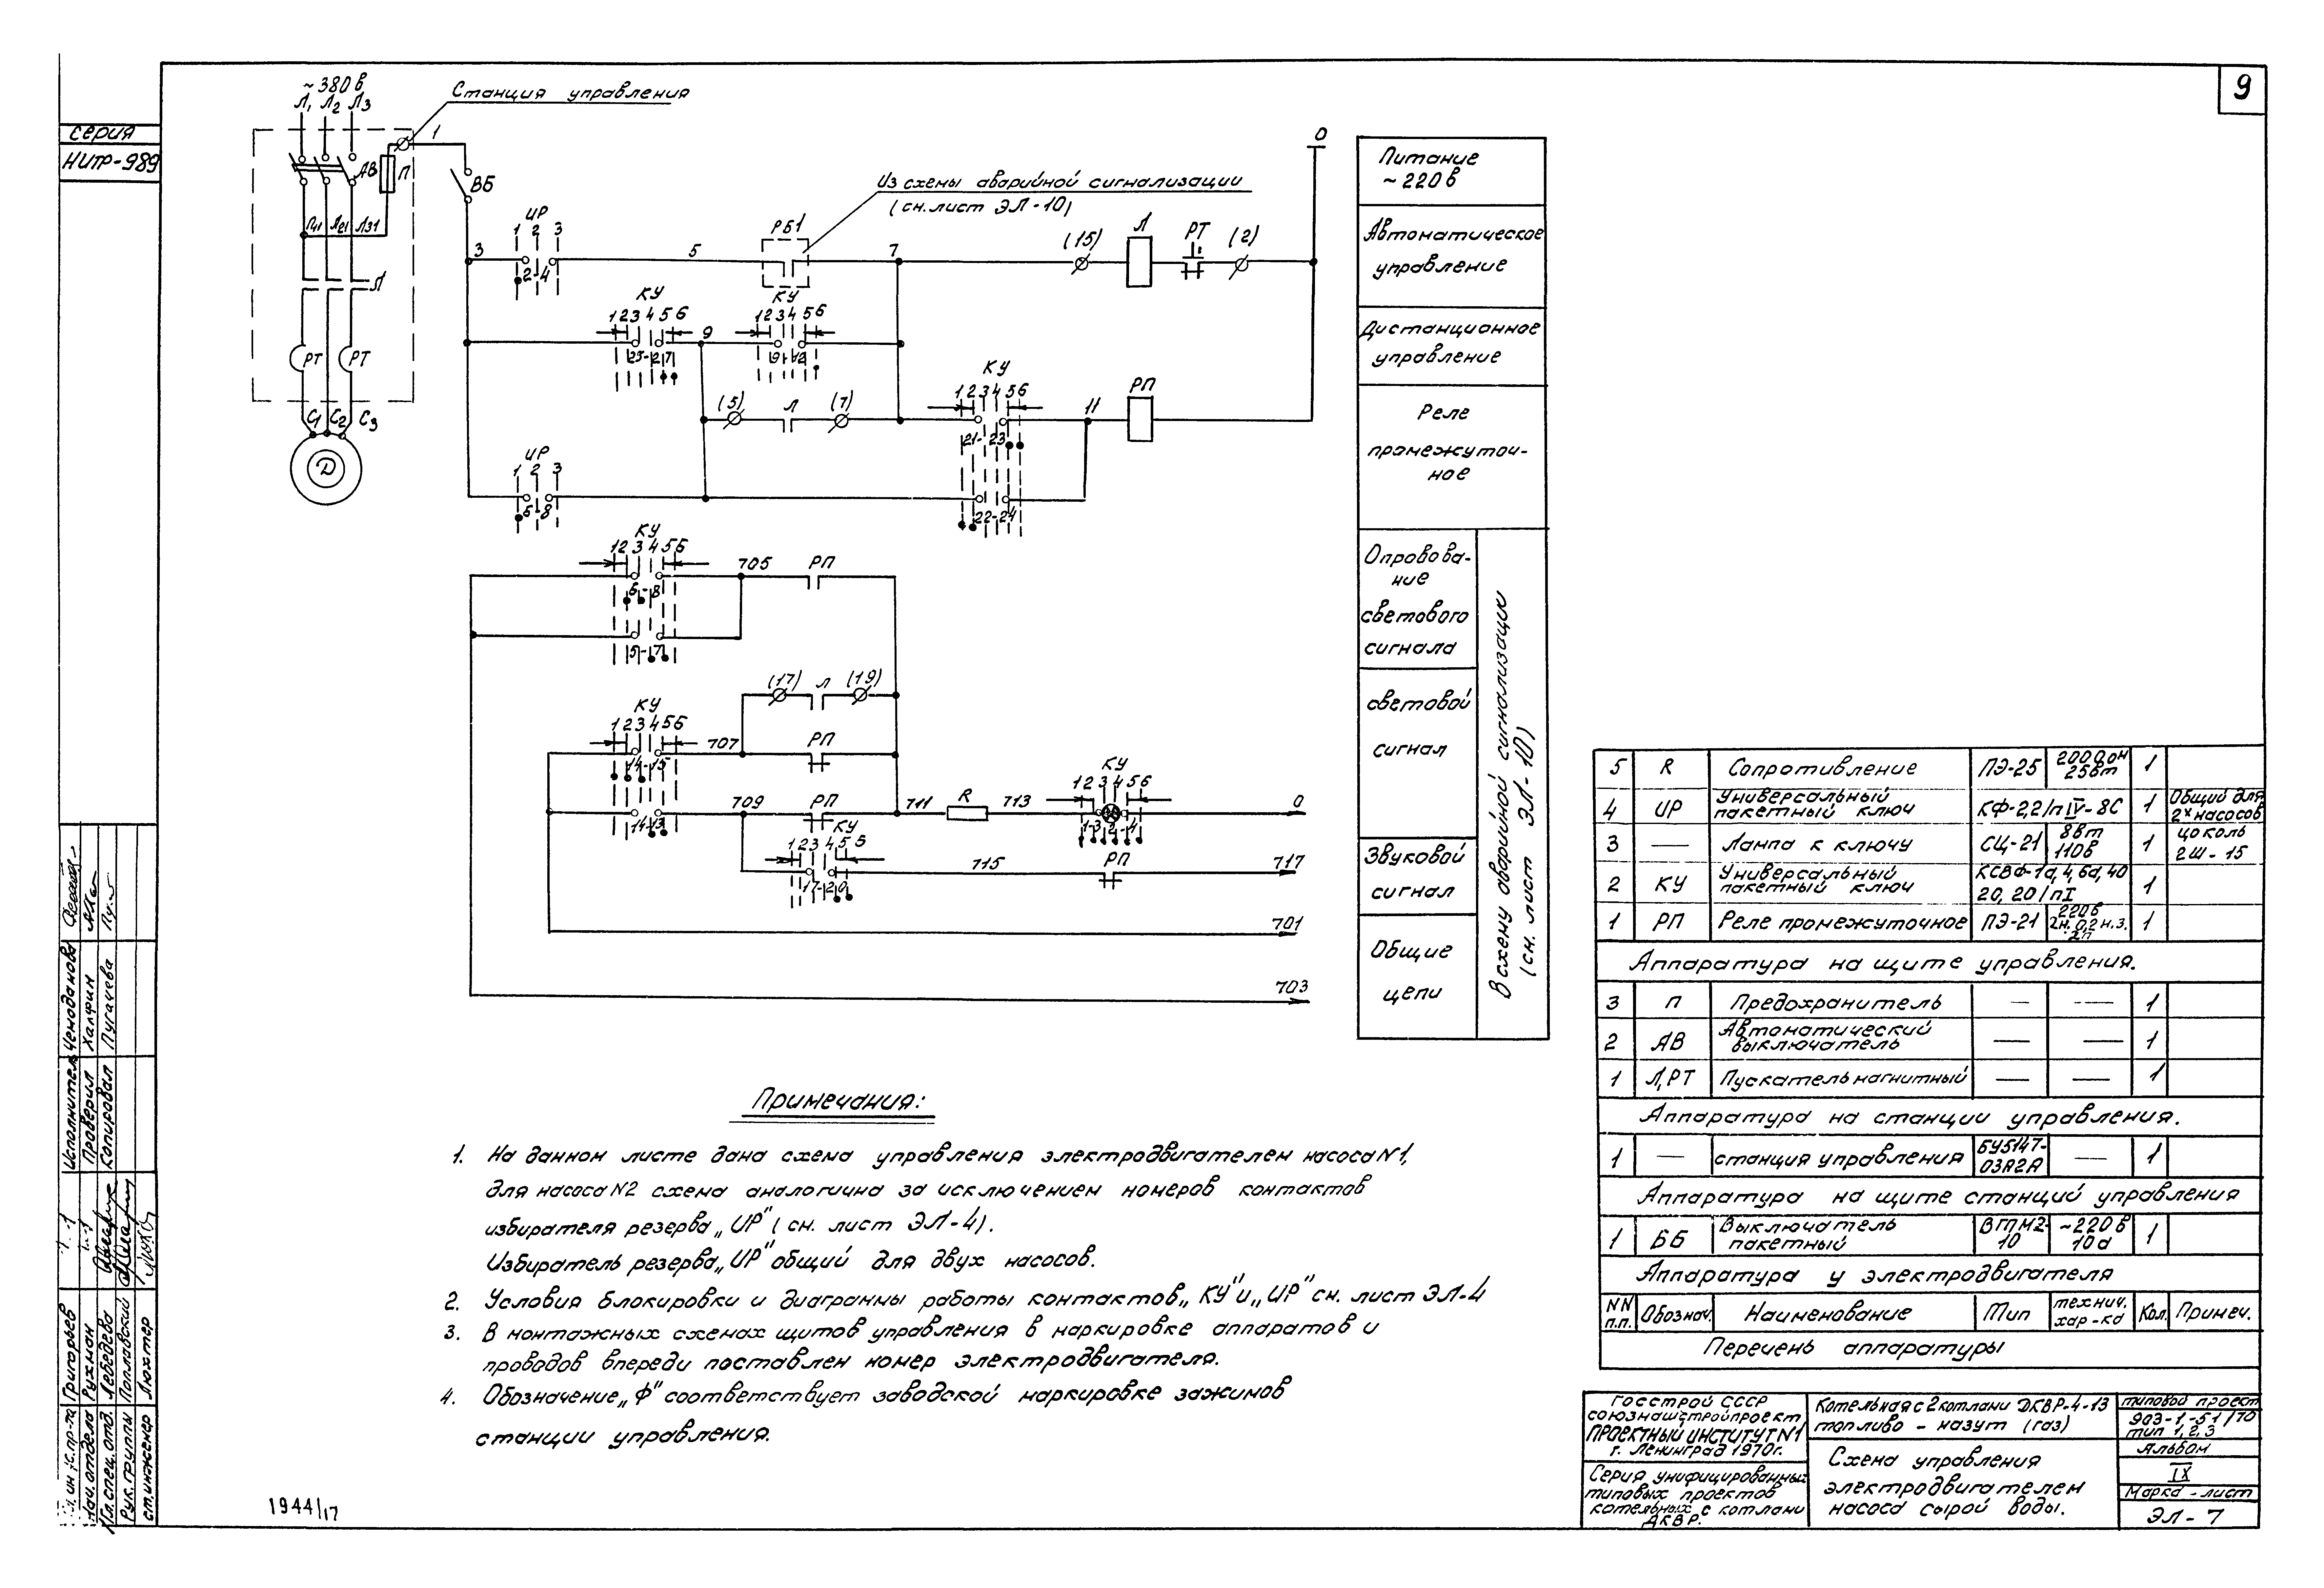 9
серия
НИТР-989
~380в
Л1 Л2 Л3
Станция управления
АВ
П
1
ВБ
Л11 Л21 Л31
Л
РТ
РТ
С1 С2 С3
Д
Из схемы аварийной сигнализации
(см. лист ЭЛ-10)
ИР
1 2 3
3
2-4
5
РБ1
7
(15)
Л
РТ
(2)
0
КУ
1 2 3 4 5 6
25-27
9
КУ
1 2 3 4 5 6
9-12
(5)
Л
(7)
КУ
1 2 3 4 5 6
21-23
11
РП
ИР
1 2 3
6-8
22-24
КУ
1 2 3 4 5 6
6-8
705
РП
5-7
(17)
Л
(19)
КУ
1 2 3 4 5 6
14-15
707
РП
14-13
709
РП
711
R
713
КУ
1 2 3 4 5 6
1-3 2-4
0
КУ
1 2 3 4 5 6
17-20
715
РП
717
701
703
Питание
~220в
Автоматическое
управление
Дистанционное
управление
Реле
промежуточ-
ное
Опробова-
ние
светового
сигнала
световой
сигнал
Звуковой
сигнал
Общие
цепи
В схему аварийной сигнализации
(см. лист ЭЛ-10)
Примечания:
1. На данном листе дана схема управления электродвигателем насоса N1,
для насоса N2 схема аналогична за исключением номеров контактов
избирателя резерва „ИР" (см. лист ЭЛ-4).
Избиратель резерва „ИР" общий для двух насосов.
2. Условия блокировки и диаграммы работы контактов „КУ" и „ИР" см. лист ЭЛ-4
3. В монтажных схемах щитов управления в маркировке аппаратов и
проводов впереди поставлен номер электродвигателя.
4. Обозначение „Ф" соответствует заводской маркировке зажимов
станции управления.
1944/17
5 R Сопротивление ПЭ-25 2000ом 25вт 1
4 ИР Универсальный пакетный ключ КФ-2,2/п IV-8С 1 Общий для 2х насосов
3 — Лампа к ключу СЦ-21 8вт 110в 1 цоколь 2Ш-15
2 КУ Универсальный пакетный ключ КСВФ-1а,4,6а,40 20,20/пI 1
1 РП Реле промежуточное ПЭ-21 220в 2н.о,2н.з. 2п 1
Аппаратура на щите управления.
3 П Предохранитель — — 1
2 АВ Автоматический выключатель — — 1
1 Л,РТ Пускатель магнитный — — 1
Аппаратура на станции управления.
1 — станция управления БУ5147-03А2А — 1
Аппаратура на щите станций управления
1 ББ Выключатель пакетный ВГПМ2-10 ~220в 10а 1
Аппаратура у электродвигателя
NN п.п. Обознач. Наименование Тип технич. хар-ка Кол. Примеч.
Перечень аппаратуры
Госстрой СССР
союзмашстройпроект
ПРОЕКТНЫЙ ИНСТИТУТ N1
г. Ленинград 1970г.
Серия унифицированных
типовых проектов
котельных с котлами
ДКВР.
Котельная с 2 котлами ДКВР-4-13
топливо - мазут (газ)
Схема управления
электродвигателем
насоса сырой воды.
типовой проект
903-1-51/70
тип 1,2,3
Альбом
IX
Марка-лист
ЭЛ-7
Исполнитель Чемоданова
Проверил Халфин
Копировал Пугачева
Гл. инж. пр-та Григорьев
Нач. отдела Рухман
Гл. спец. отд. Лебедева
Рук. группы Поллавский
ст. инженер Люхтер